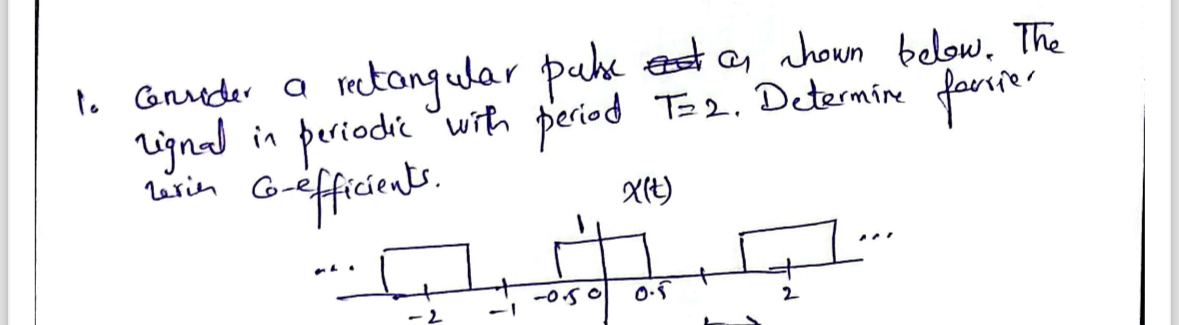 1. Consider a rectangular pulse as shown below. The
signal is periodic with period T=2. Determine fourier
series Co-efficients.
x(t)
1
... ...
-2 -1 -0.5 0 0.5 2